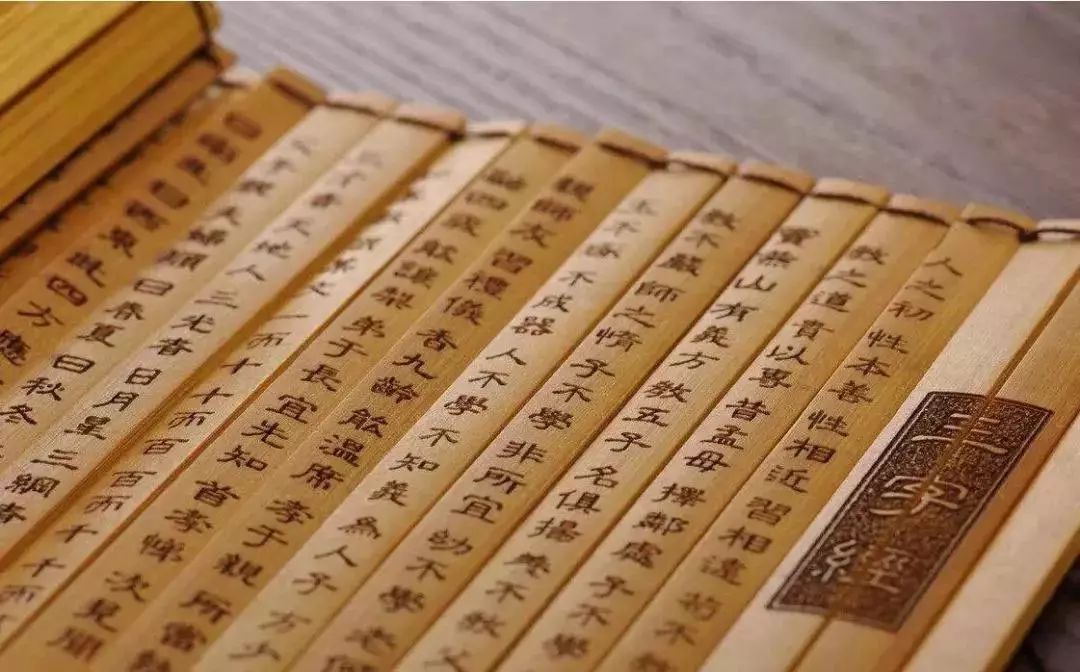 三字經
人之初性本善性相近習相遠苟不
教之道貴以專昔孟母擇鄰處子不學
竇燕山有義方教五子名俱揚養不教父
教不嚴師之惰子不學非所宜幼不學老何
玉不琢不成器人不學不知義為人子方少
親師友習禮儀香九齡能溫席孝于親所當執
融四歲能讓梨弟于長宜先知首孝悌次見聞
某文一而十十而百百而千千而
三才者天地人三光者日月星三綱者
親夫婦順曰春夏曰秋冬
東此四方應